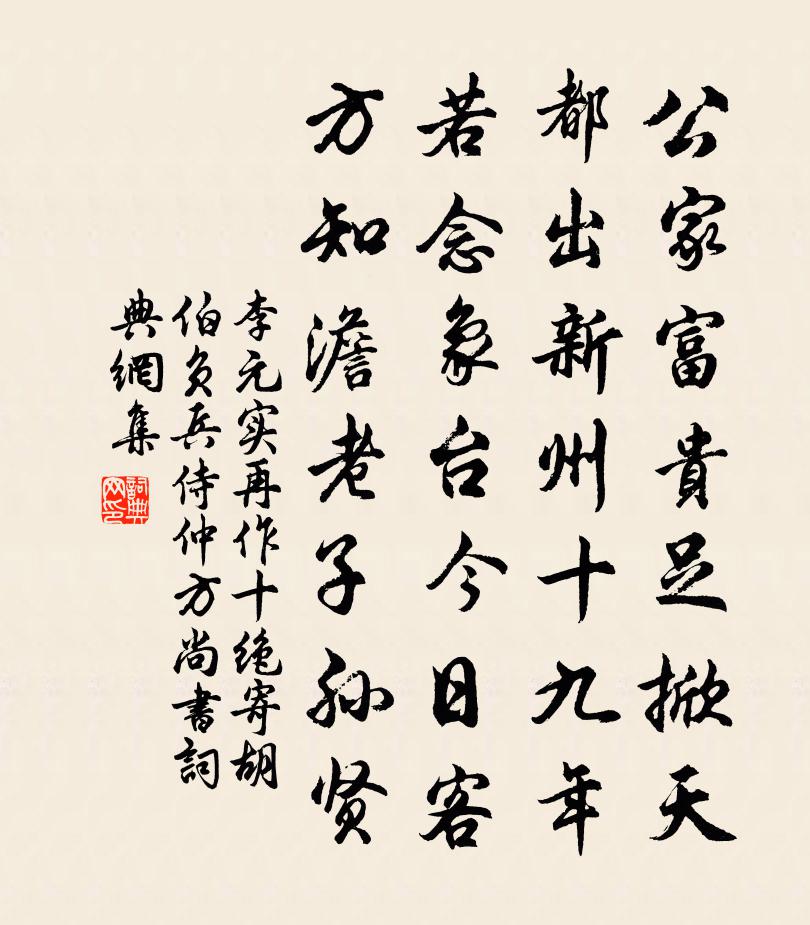 公家富貴足掀天
都出新州十九年
若念象台今日客
方知澹老子孙贤
李元实再作十绝寄胡
伯负兵侍仲方尚書詞
典網集
詞典网印